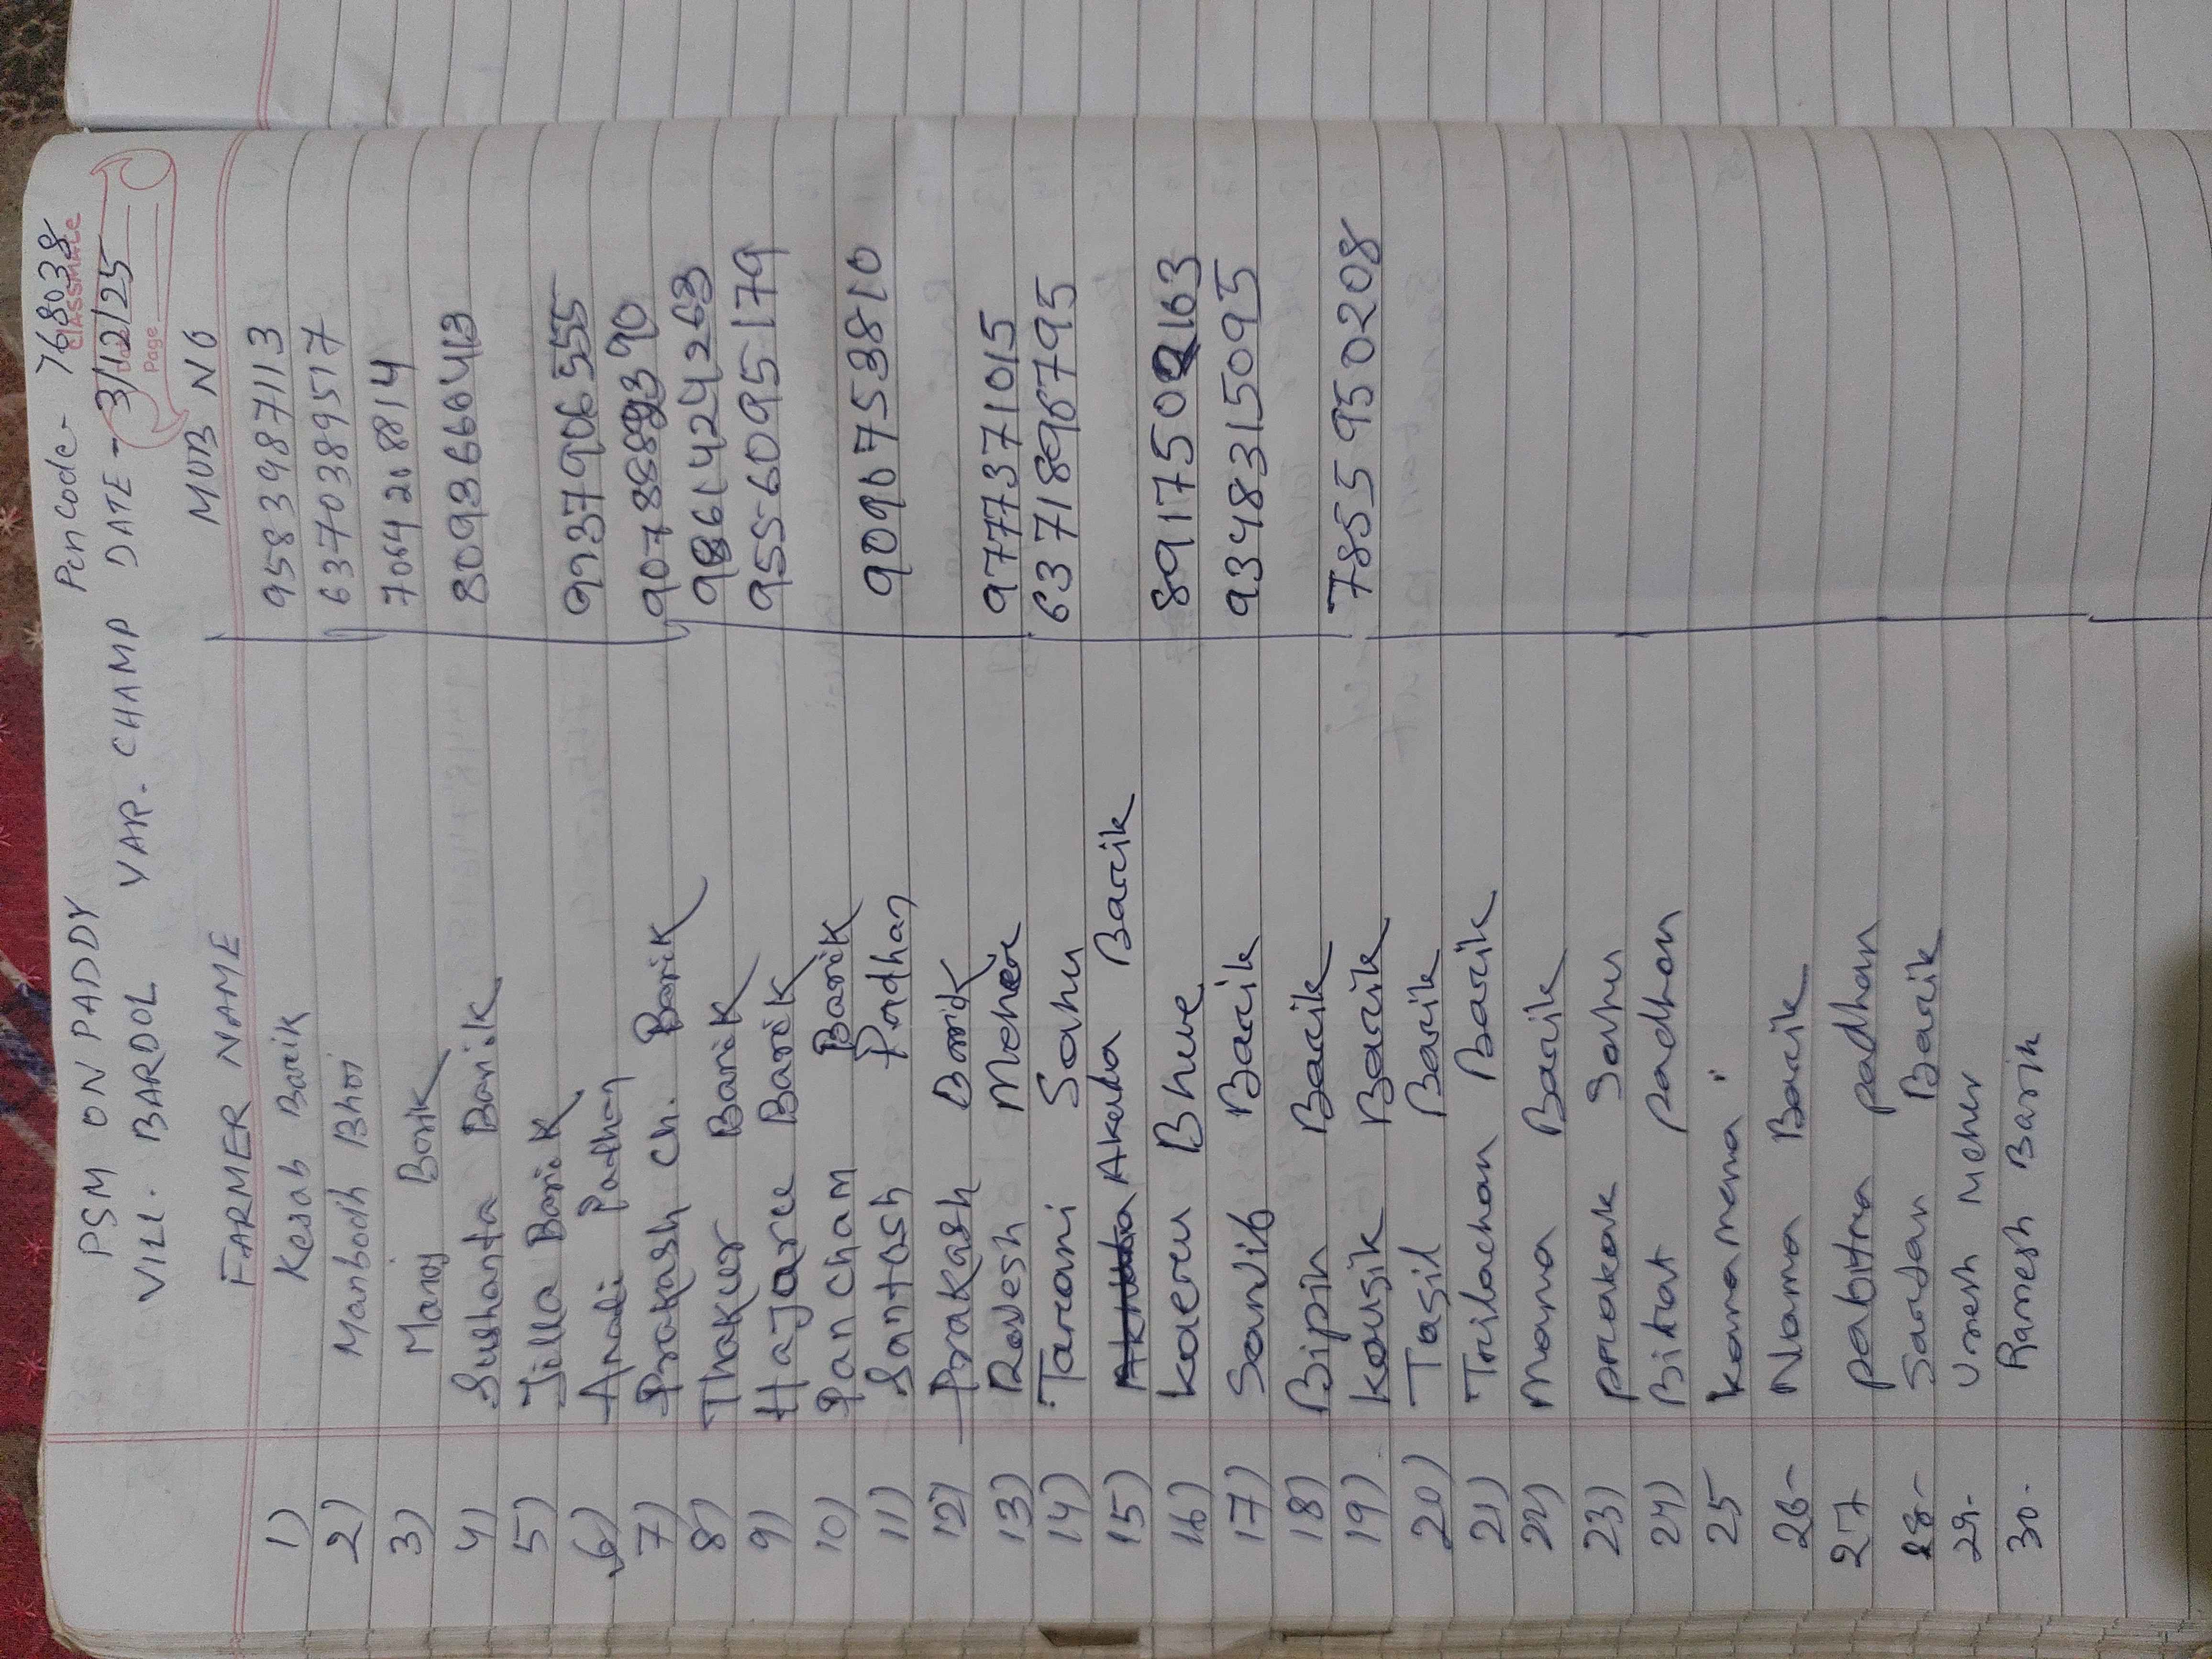 PSM ON PADDY Pincode- 768038
classmate
VILL. BARDOL VAR. CHAMP DATE - 3/12/25
Page
FARMER NAME MOB NO
1) Kesab Barik 9583987113
2) Manbodh Bhoi 6370389517
3) Manoj Barik 7064268814
4) Sushanta Barik 8093666413
5) Jilla Barik
6) Anadi Padhan 9937906555
7) Prakash Ch. Barik
8) Thakur Barik 9861424263
9) Hajare Barik 9556095179
10) Pancham Barik
11) Santosh Pradhan 9090753810
12) Prakash Barik
13) Ravesh Meher 9777371015
14) Tarani Sahu 6371896795
15) Akada Barik
16) Bhue 8917502163
17) Sanjib Barik 9348315095
18) Bipin Barik
19) Kousik Barik 7855950208
20) Tasil Barik
21) Trilochan Barik
22) Mana Barik
23) Sahu
24) padhan
25
26- Nama Barik
27 pabitra padhan
28- Sardan Barik
29- Umesh Meher
30- Ramesh Barik